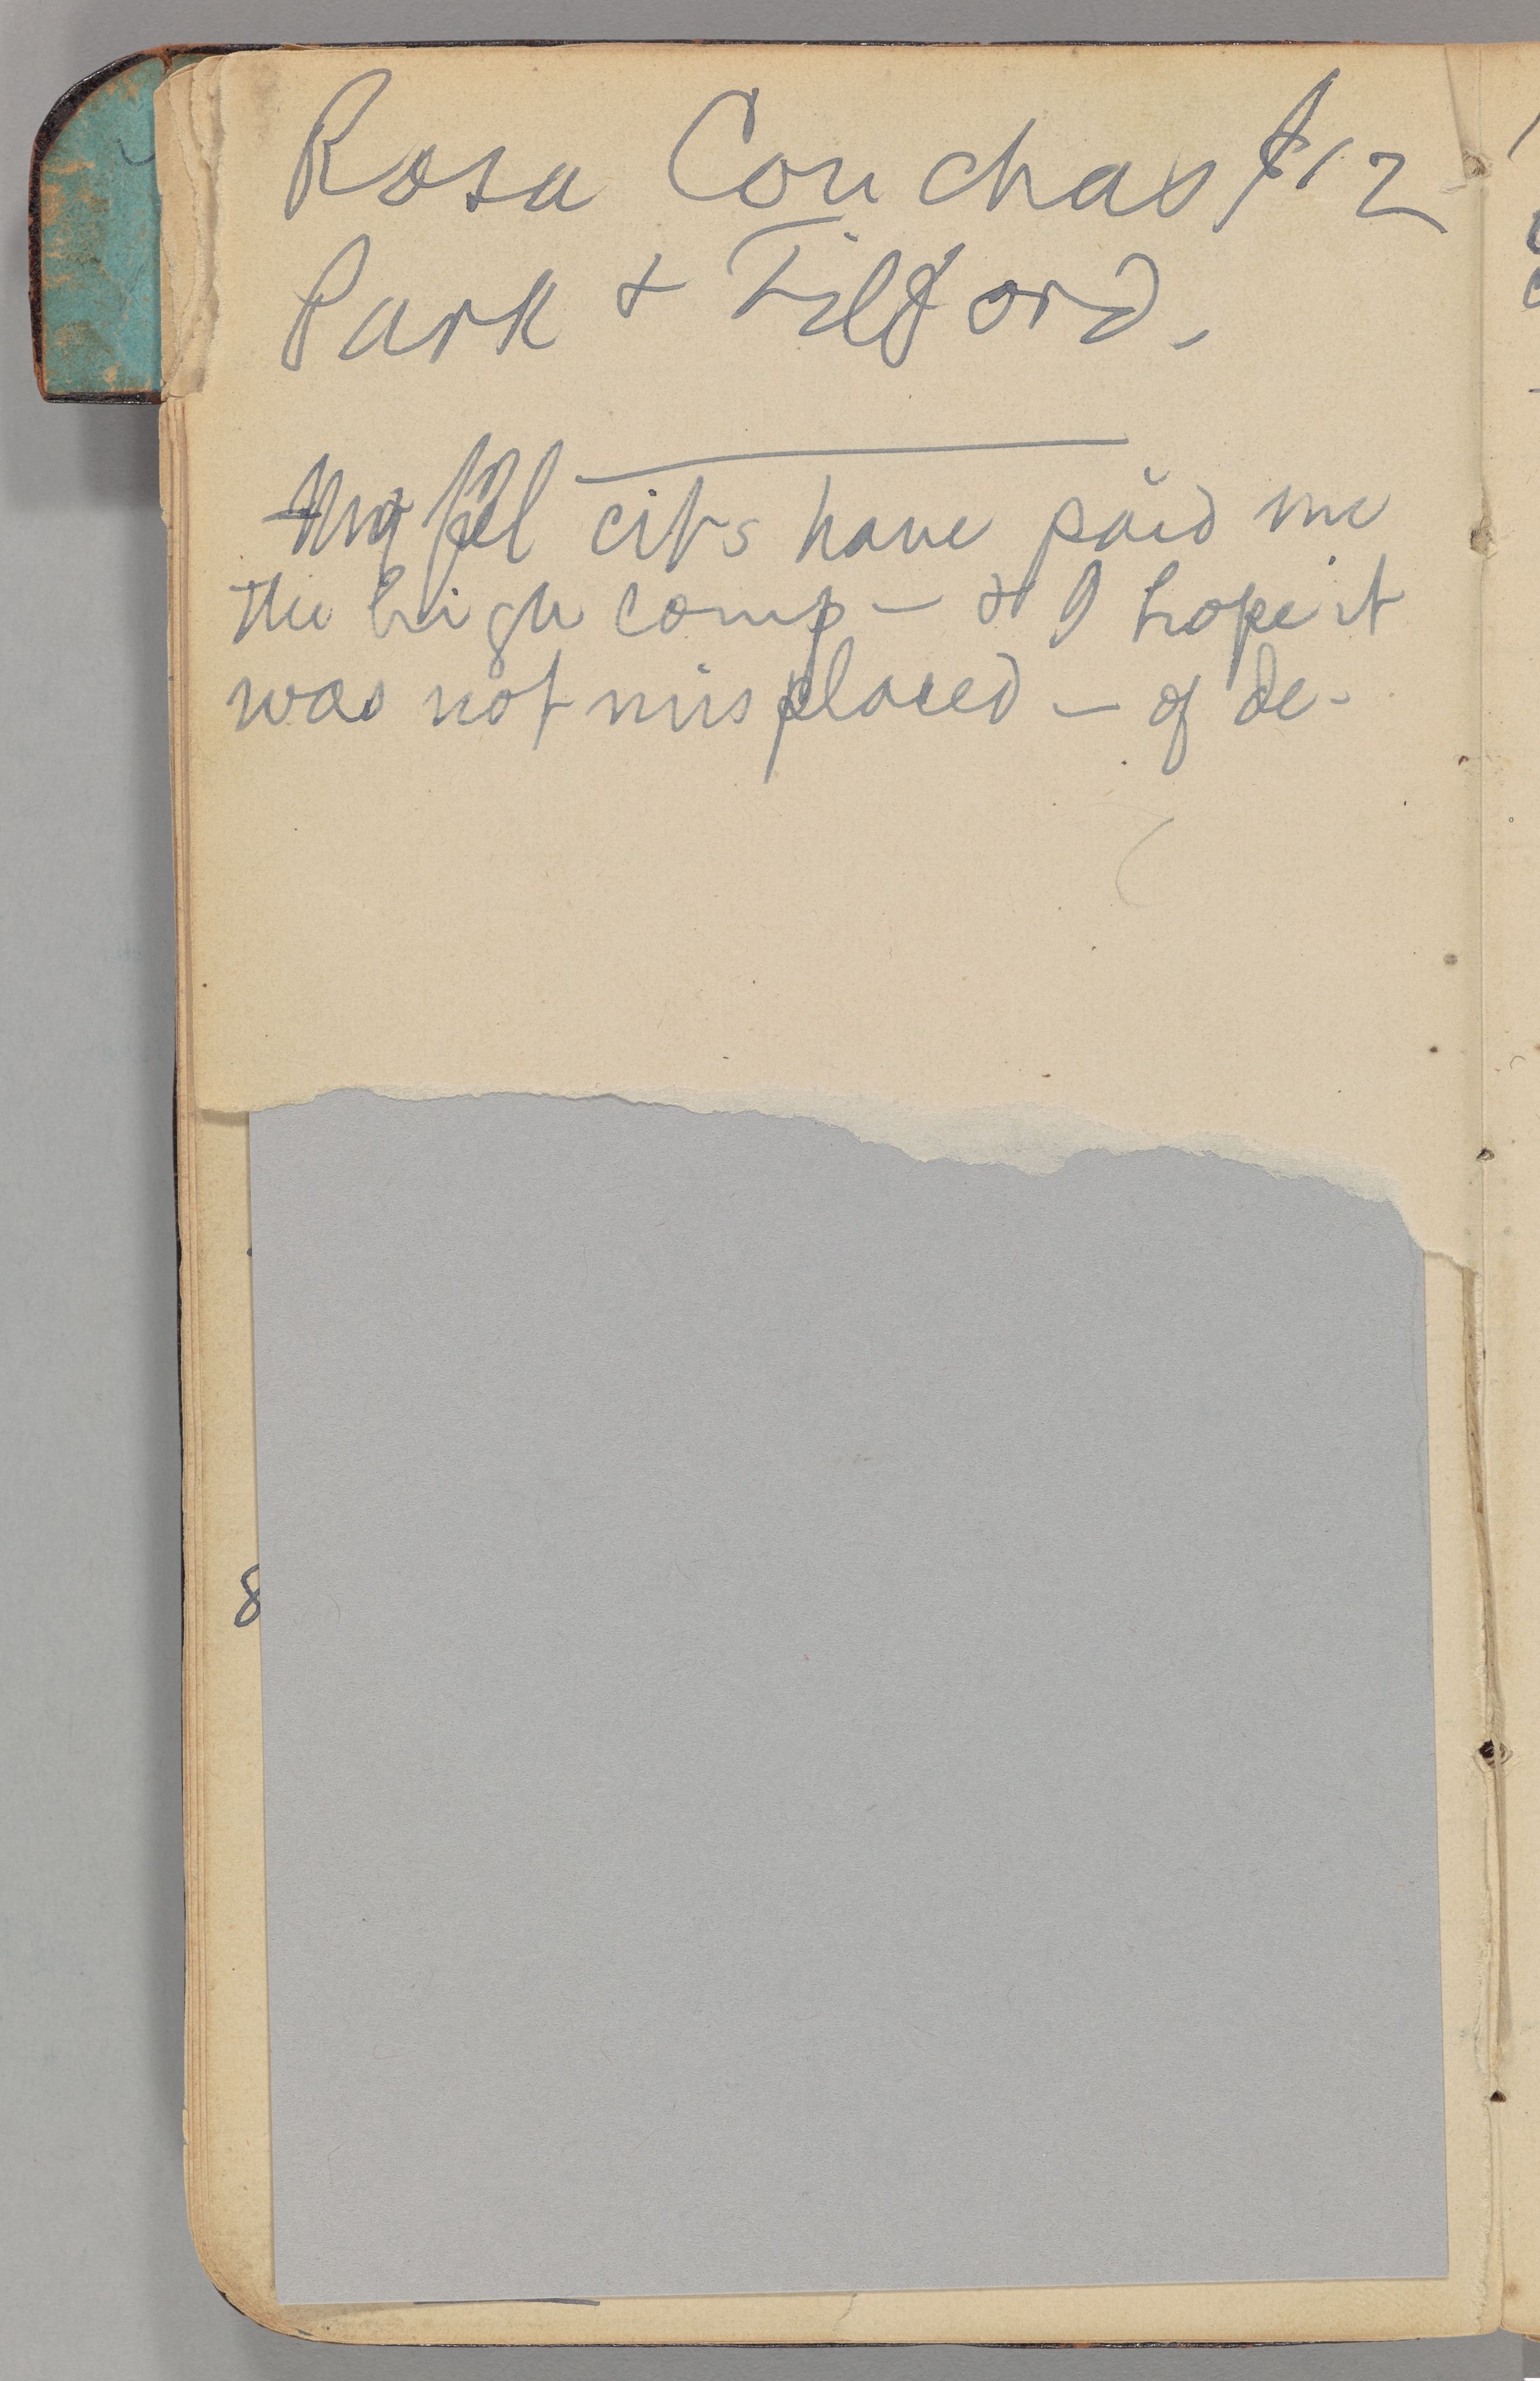 Rosa Conchas $12
Park & Tilford.
My fel cits have paid me
the high comp — & I hope it
was not misplaced — of de-
8